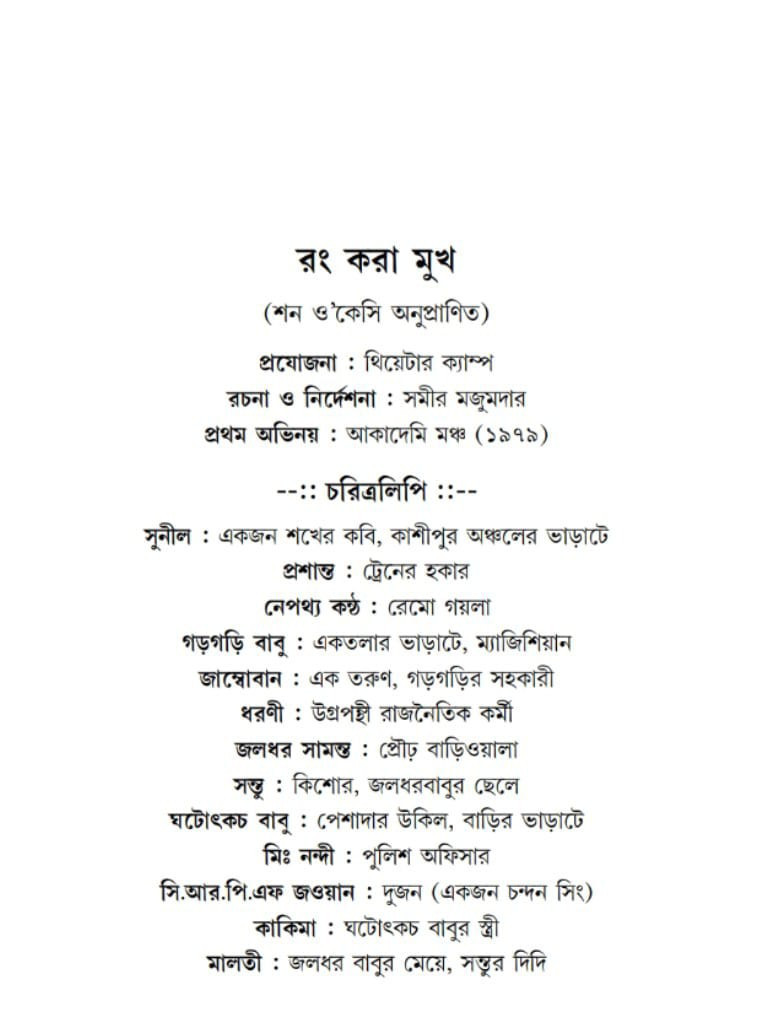 রং করা মুখ
(শন ও'কেসি অনুপ্রাণিত)
প্রযোজনা : থিয়েটার ক্যাম্প
রচনা ও নির্দেশনা : সমীর মজুমদার
প্রথম অভিনয় : আকাদেমি মঞ্চ (১৯৭৯)
--:: চরিত্রলিপি ::--
সুনীল : একজন শখের কবি, কাশীপুর অঞ্চলের ভাড়াটে
প্রশান্ত : ট্রেনের হকার
নেপথ্য কন্ঠ : রেমো গয়লা
গড়গড়ি বাবু : একতলার ভাড়াটে, ম্যাজিশিয়ান
জাম্বোবান : এক তরুণ, গড়গড়ির সহকারী
ধরণী : উগ্রপন্থী রাজনৈতিক কর্মী
জলধর সামন্ত : প্রৌঢ় বাড়িওয়ালা
সন্তু : কিশোর, জলধরবাবুর ছেলে
ঘটোৎকচ বাবু : পেশাদার উকিল, বাড়ির ভাড়াটে
মিঃ নন্দী : পুলিশ অফিসার
সি.আর.পি.এফ জওয়ান : দুজন (একজন চন্দন সিং)
কাকিমা : ঘটোৎকচ বাবুর স্ত্রী
মালতী : জলধর বাবুর মেয়ে, সন্তুর দিদি